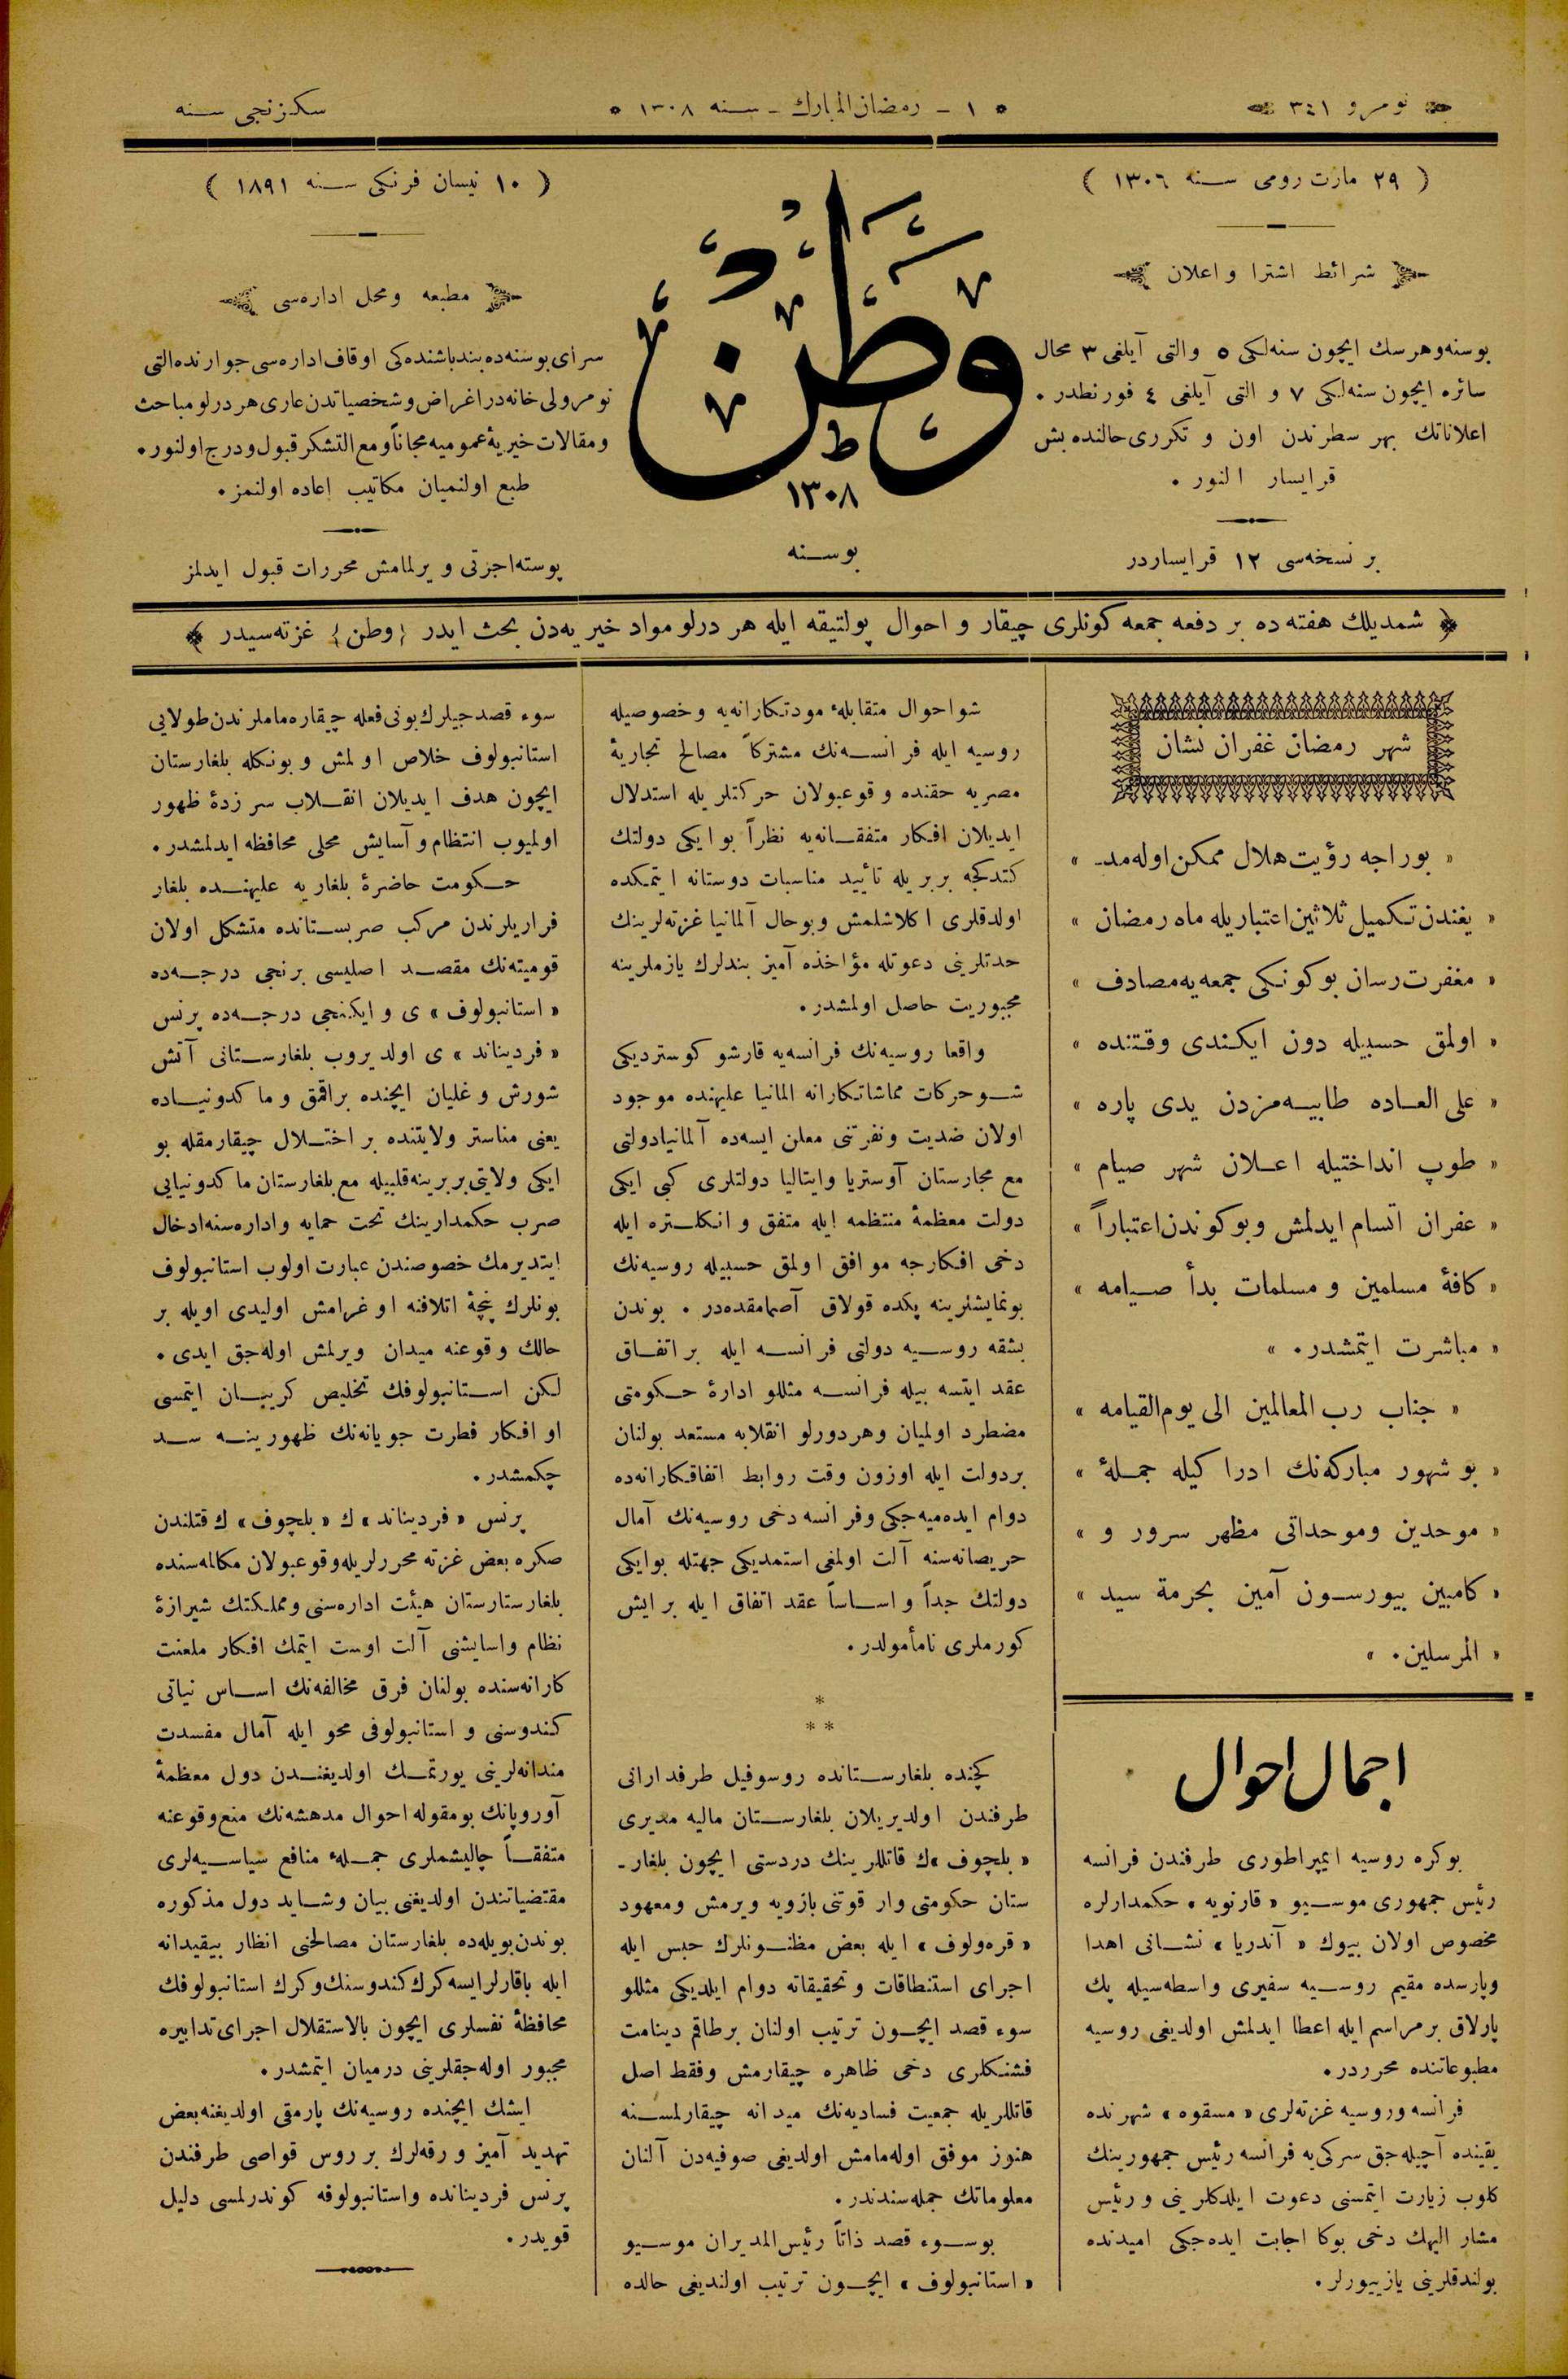 نومرو ٣٤١
١ - رمضان المبارك - سنه ١٣٠٨
سكزنجی سنه
( ٢٩ مارت رومی سنه ١٣٠٦ )
شرائط اشترا و اعلان
بوسنه وهرسك ايچون سنه لكی ٥ والتی آيلغی ٣ محال
سائره ايچون سنه لكی ٧ و التی آيلغی ٤ فورنطدر .
اعلاناتك بهر سطرندن اون و تكرری حالنده بش
قرايسار النور .
بر نسخه سی ١٢ قرايساردر
وطن
ط
١٣٠٨
بوسنه
( ١٠ نيسان فرنكی سنه ١٨٩١ )
مطبعه ومحل اداره سی
سرای بوسنه ده بندباشنده كی اوقاف اداره سی جوارنده التی
نومرولی خانه در اغراض وشخصياتدن عاری هر درلو مباحث
ومقالات خيريۀ عموميه مجاناً ومع التشكر قبول ودرج اولنور .
طبع اولنميان مكاتيب اعاده اولنمز .
پوسته اجرتی ويرلمامش محررات قبول ايدلمز
شمديلك هفته ده بر دفعه جمعه كونلری چيقار و احوال پولتيقه ايله هر درلو مواد خيريه دن بحث ايدر {وطن} غزته سيدر
شهر رمضان غفران نشان
« بوراجه رؤيت هلال ممكن اوله مد- »
« يغندن تكميل ثلاثين اعتباريله ماه رمضان »
« مغفرت رسان بوكونكی جمعه يه مصادف »
« اولمق حسبيله دون ايكندی وقتنده »
« علی العاده طابيه مزدن يدی پاره »
« طوپ انداختيله اعلان شهر صيام »
« غفران اتسام ايدلمش وبوكوندن اعتباراً »
« كافۀ مسلمين و مسلمات بدأ صيامه »
« مباشرت ايتمشدر . »
« جناب رب المعالمين الی يوم القيامه »
« بو شهور مباركه نك ادرا كيله جملۀ »
« موحدين وموحداتی مظهر سرور و »
« كامبين بيورسون آمين بحرمة سيد »
« المرسلين . »
اجمال احوال
بوكره روسيه ايمپراطوری طرفندن فرانسه
رئيس جمهوری موسيو « قارنويه » حكمدارلره
مخصوص اولان بيوك « آندريا » نشانی اهدا
وپارسده مقيم روسيه سفيری واسطه سيله پك
پارلاق بر مراسم ايله اعطا ايدلمش اولديغی روسيه
مطبوعاتنده محرردر .
فرانسه وروسيه غزته لری « مسقوه » شهرنده
يقينده آچيله جق سركی يه فرانسه رئيس جمهورينك
كلوب زيارت ايتمسنی دعوت ايلدكلرينی و رئيس
مشار اليهك دخی بوكا اجابت ايده جكی اميدنده
بولندقلرينی يازييورلر .
شو احوال متقابلۀ مودتكارانه يه وخصوصيله
روسيه ايله فرانسه نك مشتركاً مصالح تجاريۀ
مصريه حقنده وقوعبولان حركتلريله استدلال
ايديلان افكار متفقانه يه نظراً بو ايكی دولتك
كتدكجه بربريله تأييد مناسبات دوستانه ايتمكده
اولدقلری اكلاشلمش وبوحال آلمانيا غزته لرينك
حدتلرينی دعوتله مؤاخذه آميز بندلرك يازملرينه
مجبوريت حاصل اولمشدر .
واقعا روسيه نك فرانسه يه قارشو كوسترديكی
شو حركات مماشاتكارانه المانيا عليهنده موجود
اولان ضديت ونفرتنی معلن ايسه ده آلمانيا دولتی
مع مجارستان آوستريا وايتاليا دولتلری كبی ايكی
دولت معظمۀ منتظمه ايله متفق و انكلتره ايله
دخی افكارجه موافق اولمق حسبيله روسيه نك
بونمايشلرينه پكده قولاق آصمامقده در . بوندن
بشقه روسيه دولتی فرانسه ايله بر اتفاق
عقد ايتسه بيله فرانسه مثللو ادارۀ حكومتی
مضطرد اولميان وهردورلو انقلابه مستعد بولنان
بر دولت ايله اوزون وقت روابط اتفاقكارانه ده
دوام ايده ميه جكی وفرانسه دخی روسيه نك آمال
حريصانه سنه آلت اولمغی استمديكی جهتله بوايكی
دولتك جداً واساساً عقد اتفاق ايله بر ايش
كورملری نامأمولدر .
*
* *
كچنده بلغارستانده روسوفيل طرفدارانی
طرفندن اولديريلان بلغارستان ماليه مديری
« بلچوف » ك قاتللرينك دردستی ايچون بلغار-
ستان حكومتی وار قوتنی بازويه ويرمش ومعهود
« قره ولوف » ايله بعض مظنونلرك حبس ايله
اجرای استنطاقات وتحقيقاته دوام ايلديكی مثللو
سوء قصد ايچون ترتيب اولنان برطاقم دينامت
فشنكلری دخی ظاهره چيقارمش وفقط اصل
قاتللريله جمعيت فساديه نك ميدانه چيقارلمسنه
هنوز موفق اوله مامش اولديغی صوفيه دن آلنان
معلوماتك جمله سندندر .
بوسوء قصد ذاتاً رئيس المديران موسيو
« استانبولوف » ايچون ترتيب اولنديغی حالده
سوء قصد جيلرك بونی فعله چيقاره ماملرندن طولايی
استانبولوف خلاص اولمش و بونكله بلغارستان
ايچون هدف ايديلان انقلاب سر زدۀ ظهور
اولميوب انتظام وآسايش محلی محافظه ايدلمشدر .
حكومت حاضرۀ بلغاريه عليهنده بلغار
فراريلرندن مركب صربستانده متشكل اولان
قوميته نك مقصد اصليسی برنجی درجه ده
« استانبولوف » ی و ايكنجی درجه ده پرنس
« فرديناند » ی اولديروب بلغارستانی آتش
شورش و غليان ايچنده براقمق و ماكدونياده
يعنی مناستر ولايتنده بر اختلال چيقارمقله بو
ايكی ولايتی بربرينه قلبيله مع بلغارستان ماكدونيايی
صرب حكمدارينك تحت حمايه واداره سنه ادخال
ايتديرمك خصوصندن عبارت اولوب استانبولوف
بونلرك پنچۀ اتلافنه اوغرامش اوليدی اويله بر
حالك وقوعنه ميدان ويرلمش اوله جق ايدی .
لكن استانبولوفك تخليص كريبان ايتمسی
او افكار فطرت جويانه نك ظهورينه سد
چكمشدر .
پرنس « فرديناند » ك « بلچوف » ك قتلندن
صكره بعض غزته محررلريله وقوعبولان مكالمه سنده
بلغارستارستان هيئت اداره سنی ومملكتك شيرازۀ
نظام واسايشنی آلت اوست ايتمك افكار ملعنت
كارانه سنده بولنان فرق مخالفه نك اساس نياتی
كندوسنی و استانبولوفی محو ايله آمال مفسدت
مندانه لرينی يورتمك اولديغندن دول معظمۀ
آوروپانك بومقوله احوال مدهشه نك منع وقوعنه
متفقاً چاليشملری جملۀ منافع سياسيه لری
مقتضياتندن اولديغنی بيان وشايد دول مذكوره
بوندن بويله ده بلغارستان مصالحنی انظار بيقيدانه
ايله باقارلر ايسه كرك كندوسنك وكرك استانبولوفك
محافظۀ نفسلری ايچون بالاستقلال اجرای تدابيره
مجبور اوله جقلرينی درميان ايتمشدر .
ايشك ايچنده روسيه نك پارمقی اولديغنه بعض
تهديد آميز ورقه لرك بر روس قواصی طرفندن
پرنس فرديناندە واستانبولوفه كوندرلمسی دليل
قويدر .